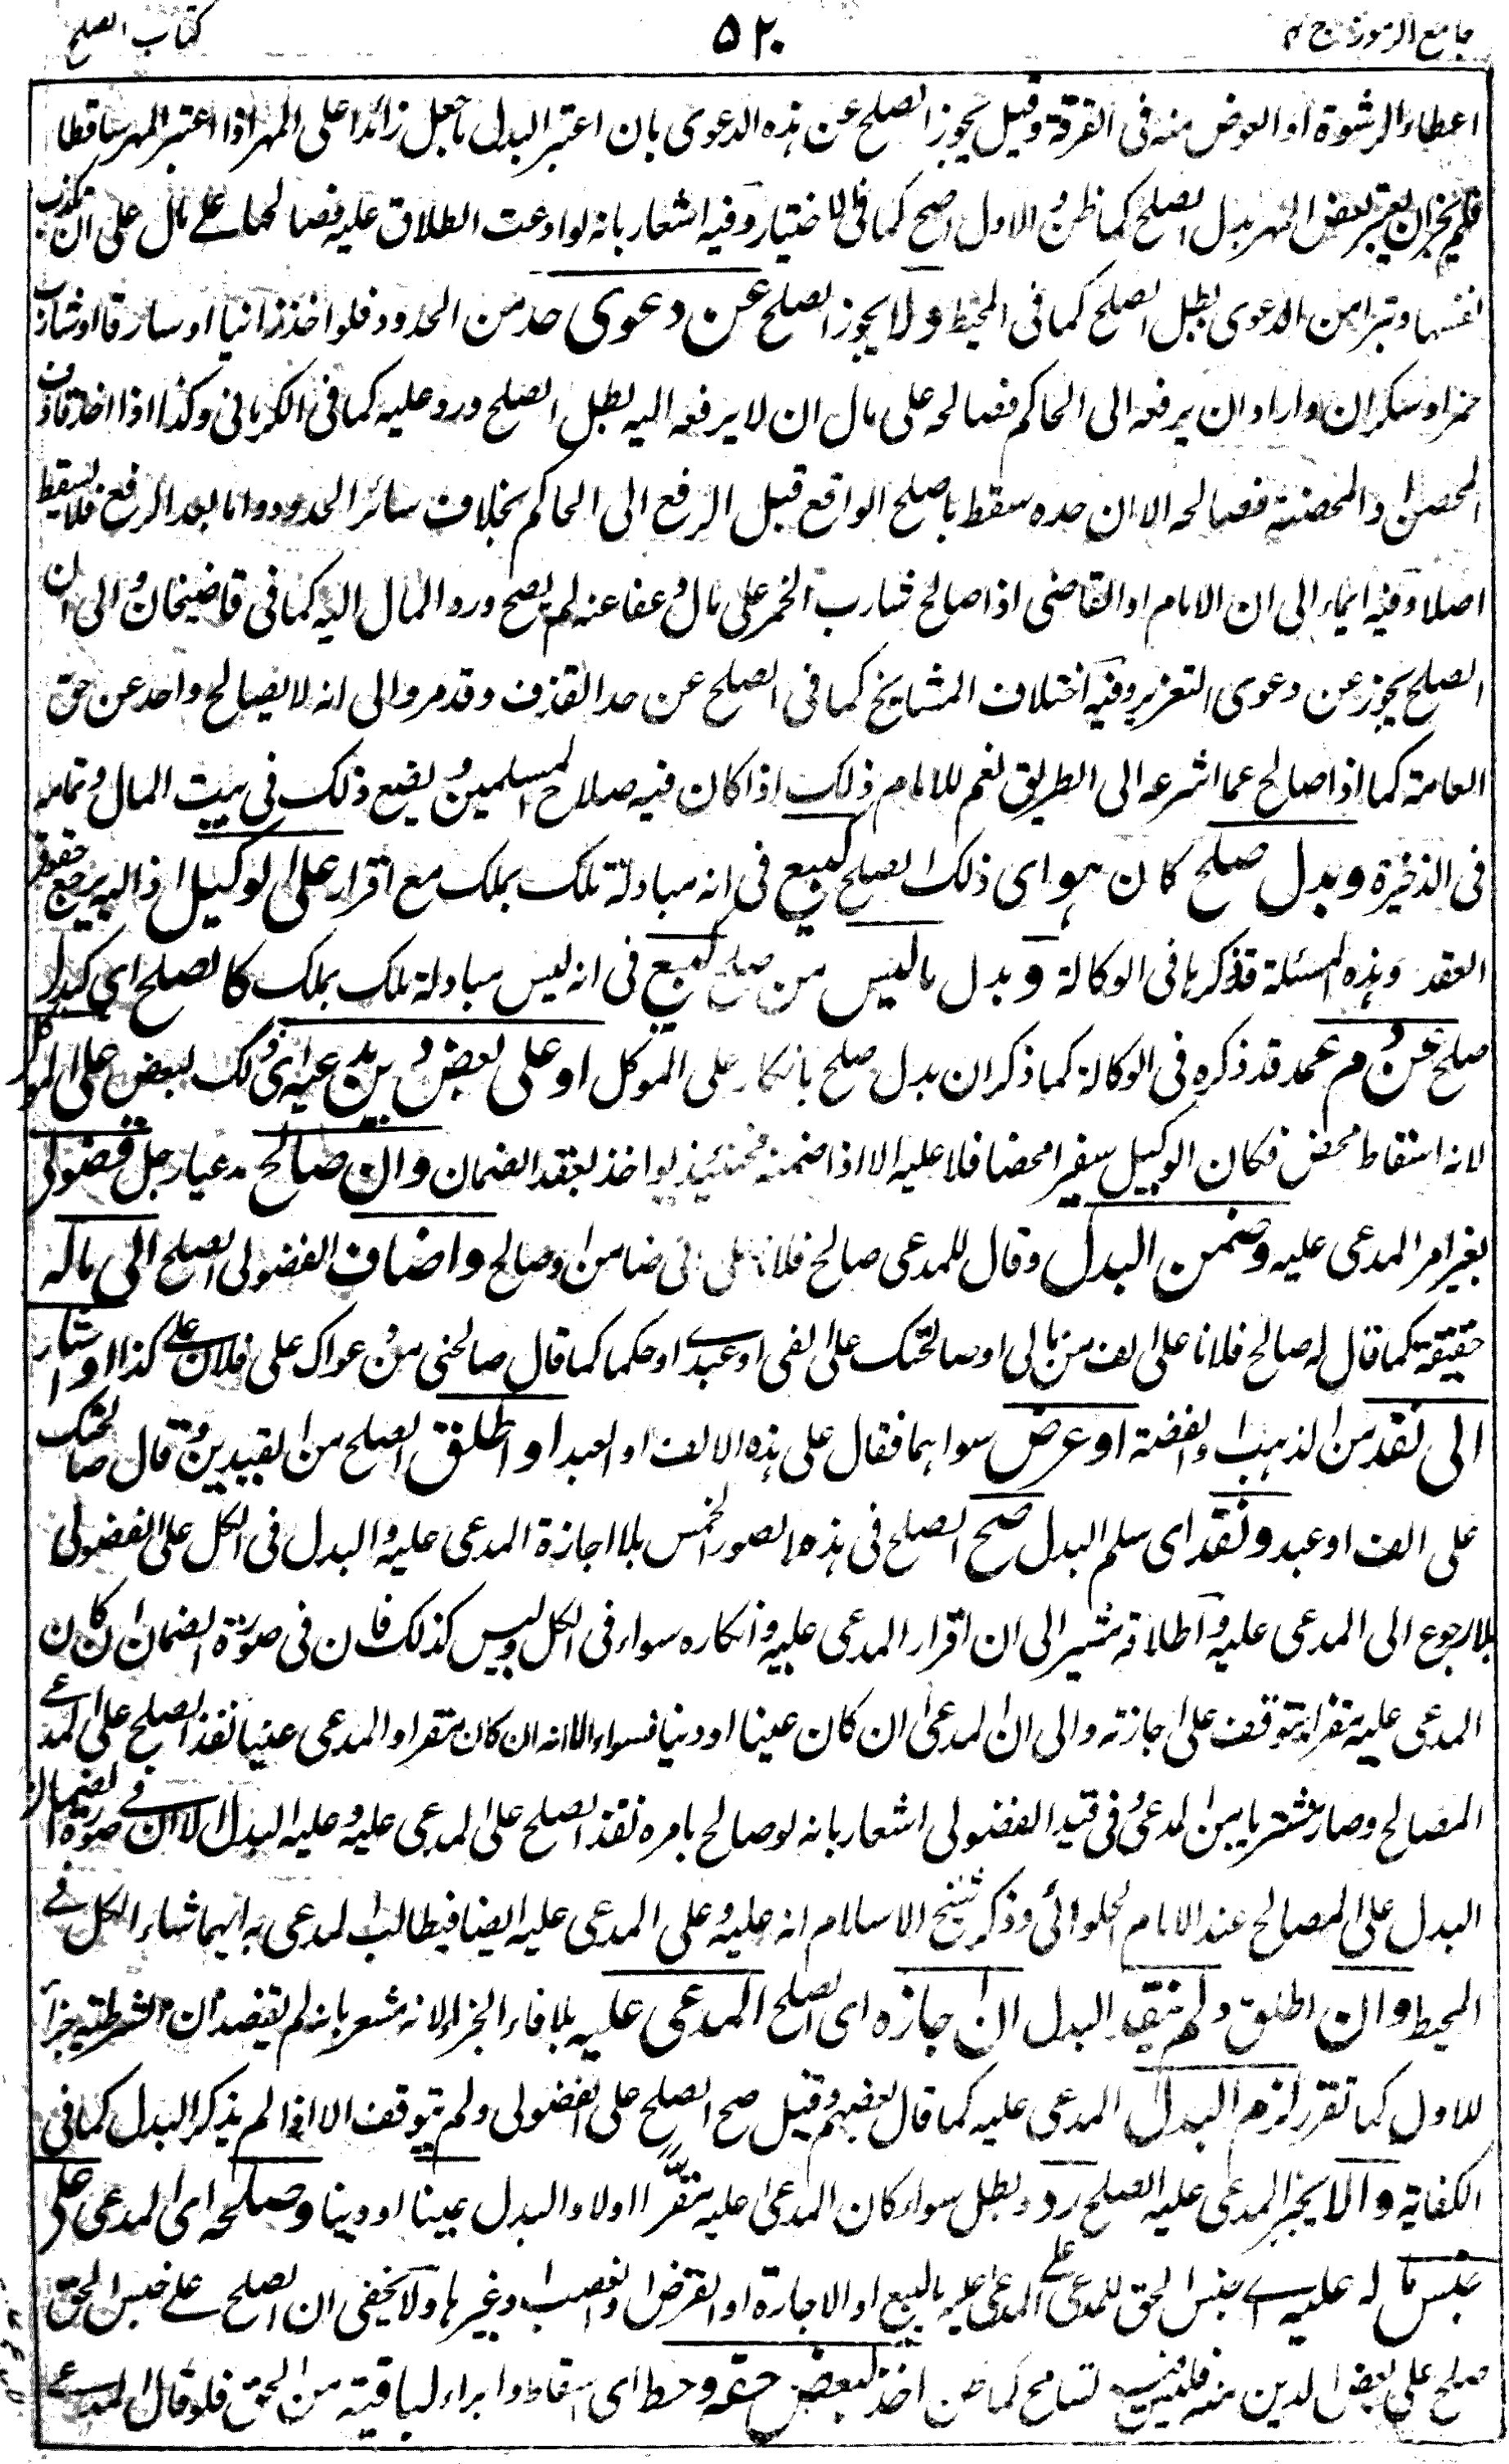 جامع الرموز ج ٣
٥٢٠
كتاب الصلح
اعطاء الرشوة او العوض منه فى الفرقة وقيل يجوز الصلح عن هذه الدعوى بان اعتبر البدل ما جعل زائدا على المهر اذا اعتبر المهر ساقطا
فلم يجز ان يعتبر بعض المهر بدل الصلح كما ظن والاول اصح كما فى الاختيار وفيه اشعار بانه لو ادعت الطلاق عليه فصالحها على مال على ان تكذب
نفسها وتبرأ من الدعوى بطل الصلح كما فى المحيط ولا يجوز الصلح عن دعوى حد من الحدود فلو اخذ زانيا او سارقا او شارب
خمر او سكران واراد ان يرفعه الى الحاكم فصالحه على مال ان لا يرفعه اليه بطل الصلح ورد عليه كما فى الكرمانى وكذا اذا اخذ قاذف
المحصن او المحصنة فصالحه الا ان حده سقط بالصلح الواقع قبل الرفع الى الحاكم بخلاف سائر الحدود واما بعد الرفع فلا يسقط
اصلا وفيه ايماء الى ان الامام او القاضى اذا صالح شارب الخمر على مال وعفا عنه لم يصح ورد المال اليه كما فى قاضيخان والى ان
الصلح يجوز عن دعوى التعزير وفيه اختلاف المشايخ كما فى الصلح عن حد القذف وقد مر والى انه لا يصالح واحد عن حق
العامة كما اذا صالح عما اشرعه الى الطريق نعم للامام ذلك اذا كان فيه صلاح المسلمين ويضع ذلك فى بيت المال وتمامه
فى الذخيرة وبدل صلح كان هو اى ذلك الصلح كبيع فى انه مبادلة ملك بملك مع اقرار على الوكيل اذ اليه يرجع حقوق
العقد وهذه المسئلة قد ذكرها فى الوكالة وبدل ما ليس من صلح كبيع فى انه ليس مبادلة ملك بملك كالصلح اى كبدل
صلح عن دم عمد قد ذكره فى الوكالة كما ذكر ان بدل صلح بانكار على الموكل او على بعض دين يدعيه اى ذلك البعض على الموكل
لانه اسقاط محض فكان الوكيل سفيرا محضا فلا عليه الا اذا ضمنه فحينئذ يواخذ بعقد الضمان وان صالح مدعيا رجل فضولى
بغير امر المدعى عليه وضمن البدل وقال للمدعى صالح فلانا على انى ضامن او صالح واضاف الفضولى الصلح الى ماله
حقيقة كما قال له صالح فلانا على الف من مالى او صالحتك على الفى او عبدى او حكما كما قال صالحنى من دعواك على فلان على كذا او اشار
الى نقد من الذهب والفضة او عرض سواهما فقال على هذه الالف او العبد او اطلق الصلح من القيدين وقال صالحتك
على الف او عبد ونقد اى سلم البدل صح الصلح فى هذه الصور الخمس بلا اجازة المدعى عليه والبدل فى الكل على الفضولى
بلا رجوع الى المدعى عليه واطلاقه مشير الى ان اقرار المدعى عليه وانكاره سواء فى الكل وليس كذلك فان فى صورة الضمان ان كان
المدعى عليه مقرا يتوقف على اجازته والى ان المدعى ان كان عينا او دينا فسواء الا انه ان كان مقرا والمدعى عينا نفذ الصلح على المدعى
المصالح وصار مشتريا من المدعى وفى قيد الفضولى اشعار بانه لو صالح بامره نفذ الصلح على المدعى عليه وعليه البدل الا ان فى صورة الضمان
البدل على المصالح عند الامام الحلوائى وذكر شيخ الاسلام انه عليه وعلى المدعى عليه ايضا فيطالب المدعى به ايهما شاء الكل فى
المحيط وان اطلق ولم ينقد البدل ان اجازه اى الصلح المدعى عليه بلا فاء الجزاء لانه مشعر بانه لم يقصد ان الشرطية جزاء
للاول كما تقرر لزم البدل المدعى عليه كما قال بعضهم وقيل صح الصلح على الفضولى ولم يتوقف الا اذا لم يذكر البدل كما فى
الكفاية والا يجيز المدعى عليه الصلح رد وبطل سواء كان المدعى عليه مقرا اولا والبدل عينا او دينا وصلحه اى المدعى على
جنس ما له عليه اى جنس الحق للمدعى على المدعى عليه بالبيع او الاجارة او القرض او الغصب وغيرها ولا يخفى ان الصلح على جنس الحق
صلح على بعض الدين منه فليس فيه تسامح كما ظن اخذ لبعض حقه وحط اى اسقاط وابراء لباقيه من الحق فلو قال المدعى